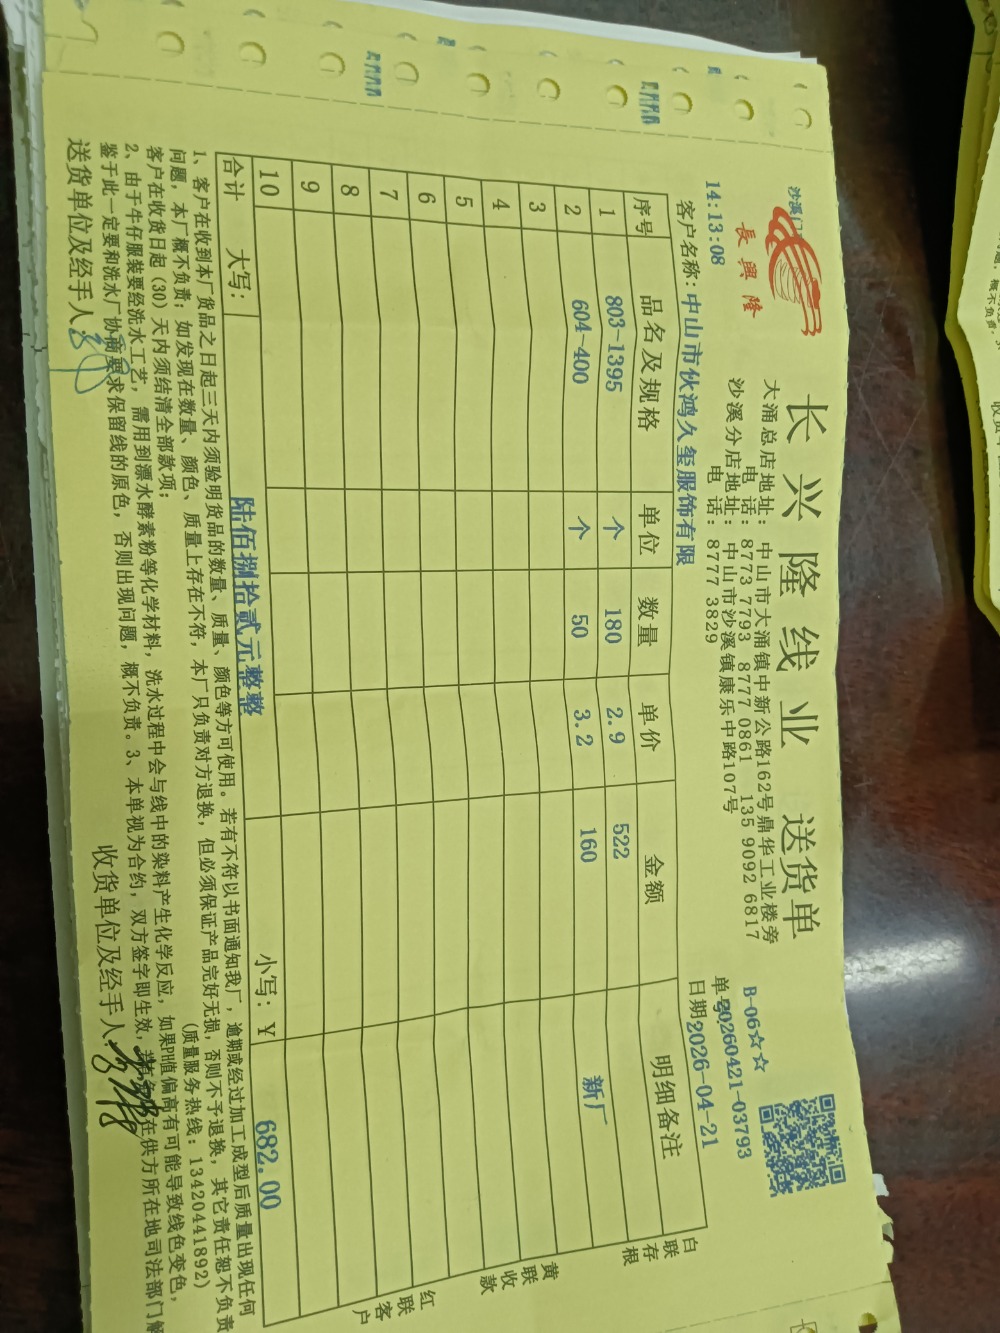 沙溪门
長興隆
14:13:08
长兴隆线业 送货单
大涌总店地址: 中山市大涌镇中新公路162号鼎华工业楼旁
电 话: 8773 7793 8777 0861 135 9092 6817
沙溪分店地址: 中山市沙溪镇康乐中路107号
电 话: 8777 3829
B-06☆☆
单号20260421-03793
日期2026-04-21
客户名称: 中山市伙鸿久玺服饰有限
序号 品名及规格 单位 数量 单价 金额 明细备注
1 803-1395 个 180 2.9 522
2 604-400 个 50 3.2 160 新厂
3
4
5
6
7
8
9
10
合计 大写: 陆佰捌拾贰元整整 小写: ¥ 682.00
白联存根
黄联收款
红联客户
1、客户在收到本厂货品之日起三天内须验明货品的数量、质量、颜色等方可使用。若有不符以书面通知我厂, 逾期或经过加工成型后质量出现任何
问题, 本厂概不负责; 如发现在数量、颜色、质量上存在不符, 本厂只负责对方退换, 但必须保证产品完好无损, 否则不予退换, 其它责任恕不负责
客户在收货日起(30)天内须结清全部款项; (质量服务热线: 13420441892)
2、由于牛仔服装要经洗水工艺, 需用到漂水酵素粉等化学材料, 洗水过程中会与线中的染料产生化学反应, 如果PH值偏高有可能导致线色变色,
鉴于此一定要和洗水厂协商要求保留线的原色, 否则出现问题, 概不负责。3、本单视为合约, 双方签字即生效, 在供方所在地司法部门解
送货单位及经手人: 收货单位及经手人: